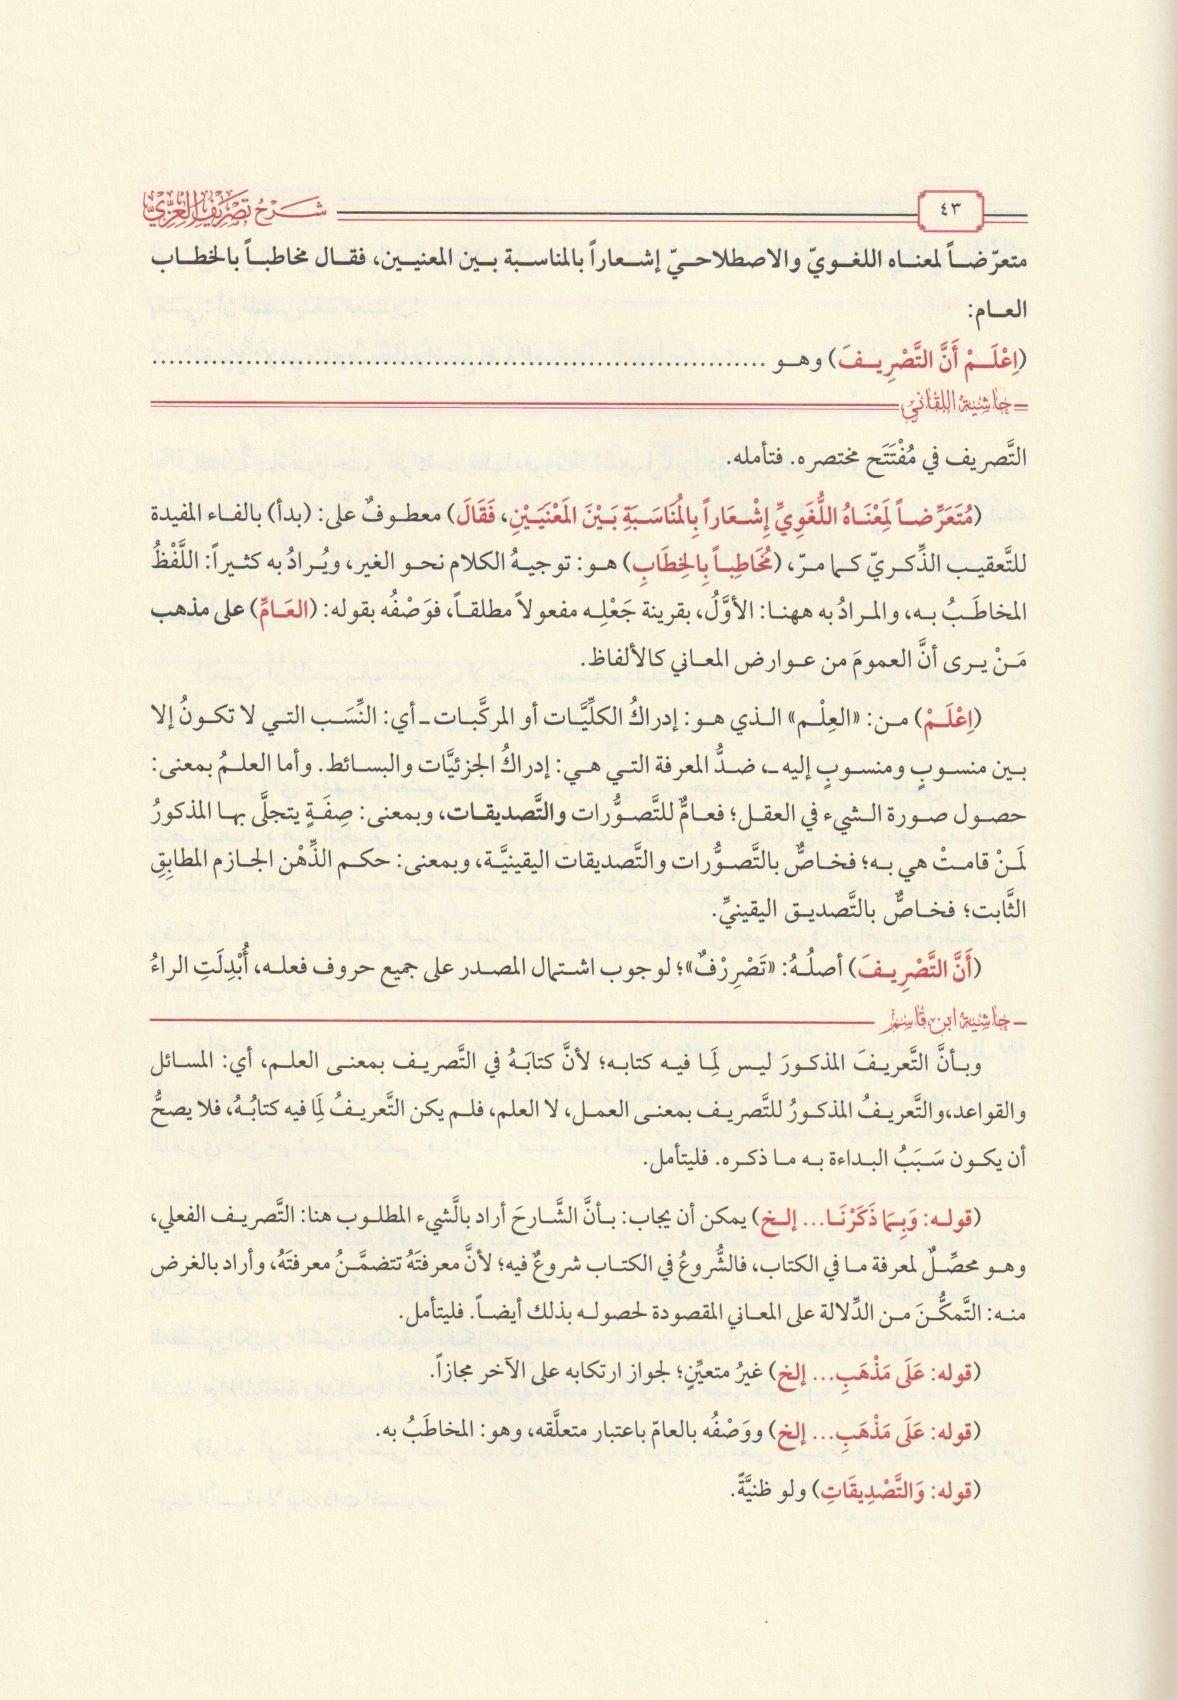 ٤٣
شرح تصريف العزي
متعرّضاً لمعناه اللغويّ والاصطلاحيّ إشعاراً بالمناسبة بين المعنيين، فقال مخاطباً بالخطاب
العام:
(اِعْلَمْ أَنَّ التَّصْرِيفَ) وهو ........................................................................
حاشية اللقاني
التَّصريف في مُفْتَتَح مختصره. فتأمله.
(مُتَعَرِّضاً لِمَعْنَاهُ اللُّغَوِيِّ إِشْعَاراً بِالمُنَاسَبَةِ بَيْنَ المَعْنَيَيْنِ، فَقَالَ) معطوفٌ على: (بدأ) بالفاء المفيدة
للتَّعقيب الذِّكريّ كما مرّ، (مُخَاطِباً بِالخِطَابِ) هو: توجيهُ الكلام نحو الغير، ويُرادُ به كثيراً: اللَّفْظُ
المخاطَبُ به، والمرادُ به ههنا: الأوَّلُ، بقرينة جَعْلِه مفعولاً مطلقاً، فوَصْفُه بقوله: (العَامِّ) على مذهب
مَنْ يرى أنَّ العمومَ من عوارض المعاني كالألفاظ.
(اِعْلَمْ) من: «العِلْم» الذي هو: إدراكُ الكلِّيَّات أو المركَّبات ـ أي: النِّسَب التي لا تكونُ إلا
بين منسوبٍ ومنسوبٍ إليه ـ، ضدُّ المعرفة التي هي: إدراكُ الجزئيَّات والبسائط. وأما العلمُ بمعنى:
حصول صورة الشيء في العقل؛ فعامٌّ للتَّصوُّرات والتَّصديقات، وبمعنى: صِفَةٍ يتجلَّى بها المذكورُ
لمَنْ قامتْ هي به؛ فخاصٌّ بالتَّصوُّرات والتَّصديقات اليقينيَّة، وبمعنى: حكم الذِّهْن الجازم المطابِقِ
الثَّابت؛ فخاصٌّ بالتَّصديق اليقينيِّ.
(أَنَّ التَّصْرِيفَ) أصلُهُ: «تَصْرِرْفٌ»؛ لوجوب اشتمال المصدر على جميع حروف فعله، أُبْدِلَتِ الراءُ
حاشية ابن قاسم
وبأنَّ التَّعريفَ المذكورَ ليس لِمَا فيه كتابه؛ لأنَّ كتابَهُ في التَّصريف بمعنى العلم، أي: المسائل
والقواعد،والتَّعريفُ المذكورُ للتَّصريف بمعنى العمل، لا العلم، فلم يكن التَّعريفُ لِمَا فيه كتابُهُ، فلا يصحُّ
أن يكون سَبَبُ البداءة به ما ذكره. فليتأمل.
(قوله: وَبِمَا ذَكَرْنَا... إلخ) يمكن أن يجاب: بأنَّ الشَّارحَ أراد بالَّشيء المطلوب هنا: التَّصريف الفعلي،
وهو محصِّلٌ لمعرفة ما في الكتاب، فالشُّروعُ في الكتاب شروعٌ فيه؛ لأنَّ معرفتَهُ تتضمَّنُ معرفتَهُ، وأراد بالغرض
منه: التَّمكُّنَ من الدِّلالة على المعاني المقصودة لحصوله بذلك أيضاً. فليتأمل.
(قوله: عَلَى مَذْهَبِ... إلخ) غيرُ متعيِّنٍ؛ لجواز ارتكابه على الآخر مجازاً.
(قوله: عَلَى مَذْهَبِ... إلخ) ووَصْفُه بالعامّ باعتبار متعلَّقه، وهو: المخاطَبُ به.
(قوله: وَالتَّصْدِيقَاتِ) ولو ظنيَّةً.